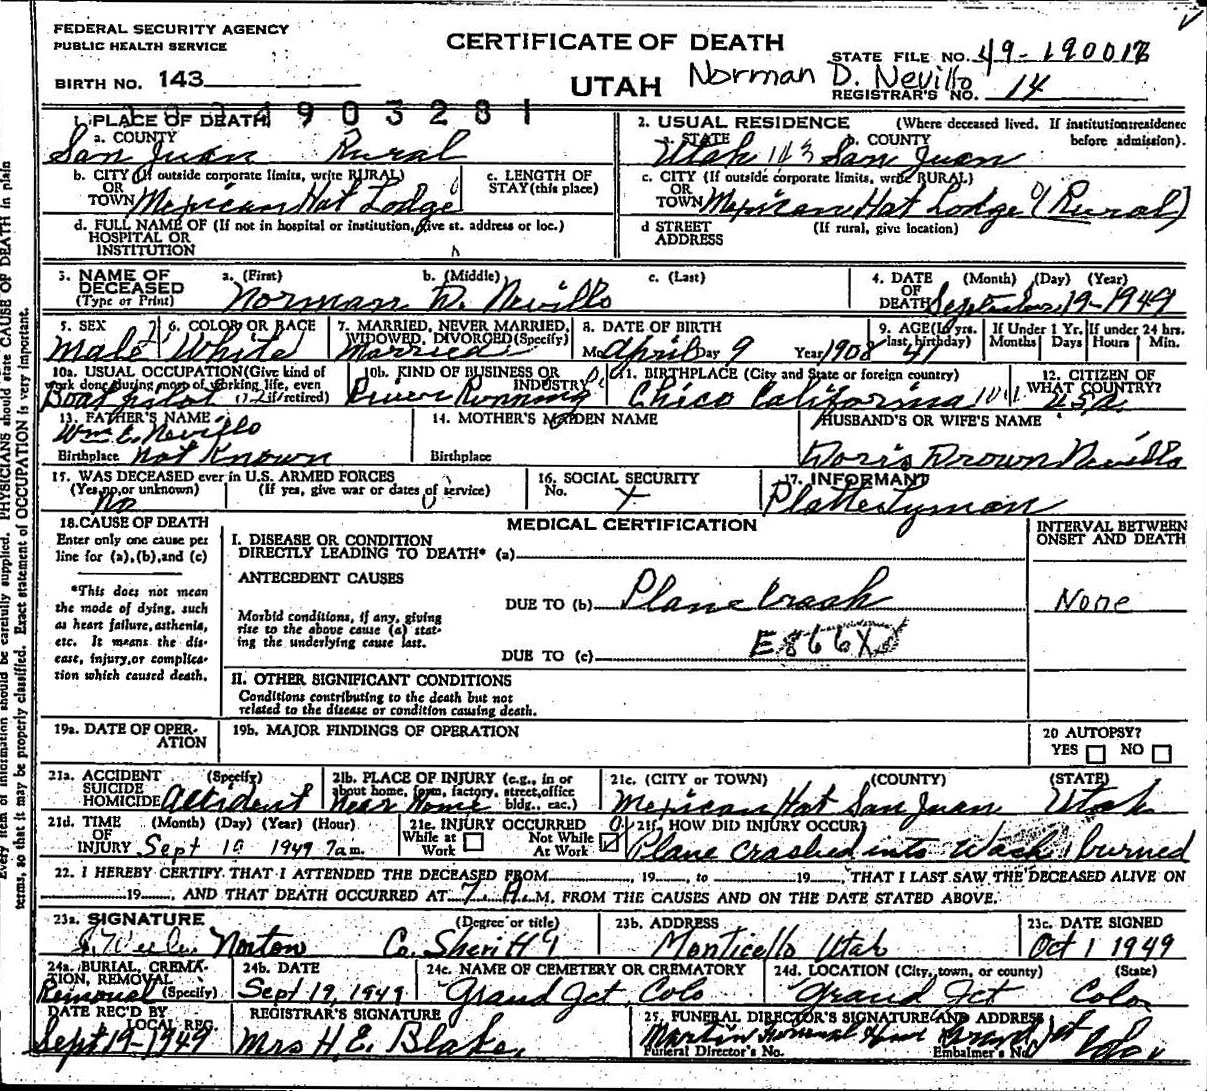 FEDERAL SECURITY AGENCY
PUBLIC HEALTH SERVICE
CERTIFICATE OF DEATH
STATE FILE NO. 49-190018
BIRTH NO. 143
UTAH
Norman D. Nevills
REGISTRAR'S NO. 14
4903281
1. PLACE OF DEATH
a. COUNTY
San Juan Rural
2. USUAL RESIDENCE (Where deceased lived. If institution:residence before admission).
a. STATE b. COUNTY
Utah 143 San Juan
b. CITY (If outside corporate limits, write RURAL)
OR
TOWN Mexican Hat Lodge
c. LENGTH OF
STAY (this place)
c. CITY (If outside corporate limits, write RURAL)
OR
TOWN Mexican Hat Lodge (Rural)
d. FULL NAME OF (If not in hospital or institution, give st. address or loc.)
HOSPITAL OR
INSTITUTION
d STREET (If rural, give location)
ADDRESS
3. NAME OF DECEASED
(Type or Print)
a. (First) b. (Middle) c. (Last)
Norman D. Nevills
4. DATE (Month) (Day) (Year)
OF
DEATH September 19-1949
5. SEX
Male
6. COLOR OR RACE
White
7. MARRIED, NEVER MARRIED,
WIDOWED, DIVORCED (Specify)
Married
8. DATE OF BIRTH
Mo. April Day 9 Year 1908
9. AGE (In yrs.
last birthday) 41
If Under 1 Yr.
Months Days
If under 24 hrs.
Hours Min.
10a. USUAL OCCUPATION (Give kind of
work done during most of working life, even
if retired)
Boat pilot
10b. KIND OF BUSINESS OR
INDUSTRY
River Running
11. BIRTHPLACE (City and State or foreign country)
Chico California
12. CITIZEN OF
WHAT COUNTRY?
USA
13. FATHER'S NAME
Wm E. Nevills
Birthplace Not Known
14. MOTHER'S MAIDEN NAME
Birthplace
HUSBAND'S OR WIFE'S NAME
Doris Drown Nevills
15. WAS DECEASED ever in U.S. ARMED FORCES
(Yes, no, or unknown) (If yes, give war or dates of service)
No
16. SOCIAL SECURITY
No.
17. INFORMANT
Platte Lyman
18. CAUSE OF DEATH
Enter only one cause per
line for (a), (b), and (c)
*This does not mean
the mode of dying, such
as heart failure, asthenia,
etc. It means the dis-
ease, injury, or complica-
tion which caused death.
MEDICAL CERTIFICATION
I. DISEASE OR CONDITION
DIRECTLY LEADING TO DEATH* (a)
ANTECEDENT CAUSES
DUE TO (b) Plane Crash
Morbid conditions, if any, giving
rise to the above cause (a) stat-
ing the underlying cause last.
E866X
DUE TO (c)
II. OTHER SIGNIFICANT CONDITIONS
Conditions contributing to the death but not
related to the disease or condition causing death.
INTERVAL BETWEEN
ONSET AND DEATH
None
19a. DATE OF OPER-
ATION
19b. MAJOR FINDINGS OF OPERATION
20 AUTOPSY?
YES NO
21a. ACCIDENT (Specify)
SUICIDE
HOMICIDE Accident
21b. PLACE OF INJURY (e.g., in or
about home, farm, factory, street, office
bldg., etc.)
Near Home
21c. (CITY or TOWN) (COUNTY) (STATE)
Mexican Hat San Juan Utah
21d. TIME (Month) (Day) (Year) (Hour)
OF
INJURY Sept 19 1949 7am.
21e. INJURY OCCURRED
While at Work Not While At Work
21f. HOW DID INJURY OCCUR?
Plane crashed into Wash, burned
22. I HEREBY CERTIFY THAT I ATTENDED THE DECEASED FROM ..., 19..., to ... 19..., THAT I LAST SAW THE DECEASED ALIVE ON
... 19..., AND THAT DEATH OCCURRED AT 7 A.M, FROM THE CAUSES AND ON THE DATE STATED ABOVE.
23a. SIGNATURE (Degree or title)
Norton Co. Sheriff
23b. ADDRESS
Monticello Utah
23c. DATE SIGNED
Oct 1 1949
24a. BURIAL, CREMA-
TION, REMOVAL
Removal (Specify)
24b. DATE
Sept 19, 1949
24c. NAME OF CEMETERY OR CREMATORY
Grand Jct. Colo
24d. LOCATION (City, town, or county) (State)
Grand Jct Colo
DATE REC'D BY
LOCAL REG.
Sept 19-1949
REGISTRAR'S SIGNATURE
Mrs H. E. Blake
25. FUNERAL DIRECTOR'S SIGNATURE AND ADDRESS
Martin Funeral Home Grand Jct Colo.
Funeral Director's No. Embalmer's No.
Every item of information should be carefully supplied. PHYSICIANS should state CAUSE OF DEATH in plain
terms, so that it may be properly classified. Exact statement of OCCUPATION is very important.